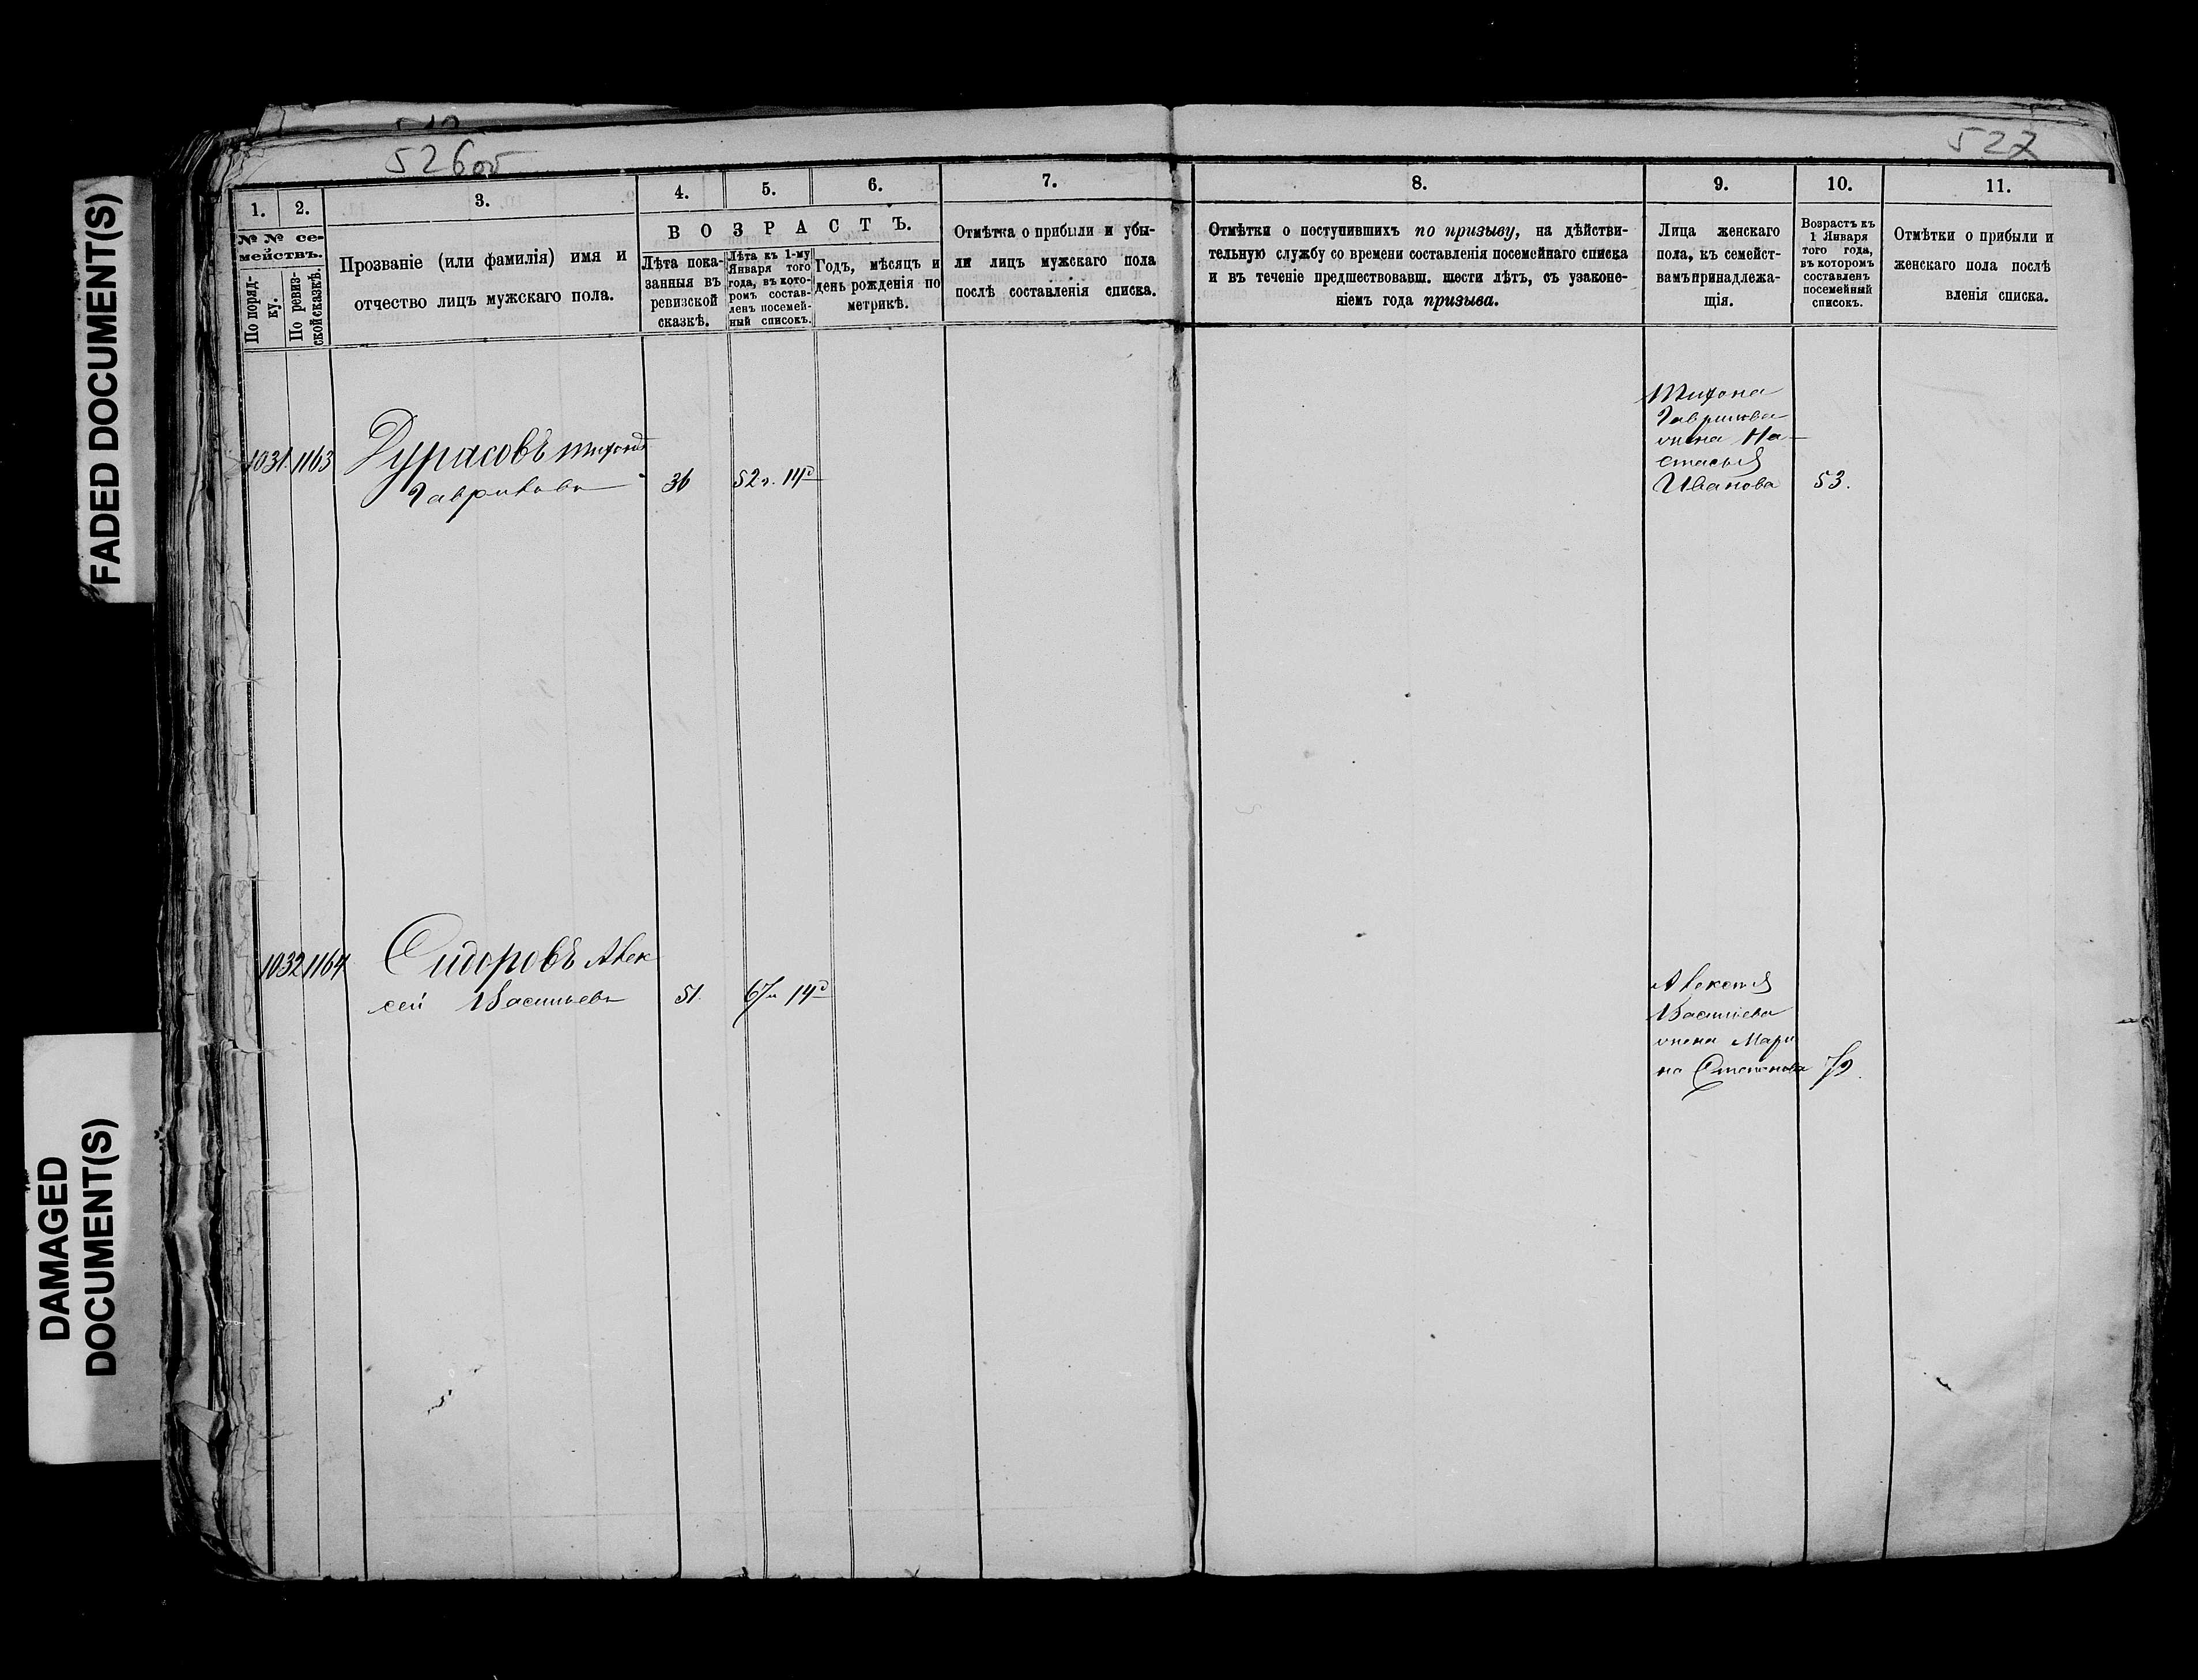 FADED DOCUMENT(S)
DAMAGED
DOCUMENT(S)
526об
527
1.
2.
3.
4.
5.
6.
7.
8.
9.
10.
11.
№ № се-
мействъ.
По поряд-
ку.
По ревиз-
ской сказкѣ.
Прозваніе (или фамилія) имя и
отчество лицъ мужскаго пола.
ВОЗРАСТЪ.
Лѣта пока-
занныя въ
ревизской
сказкѣ.
Лѣта къ 1-му
Января того
года, въ кото-
ромъ состав-
ленъ посемей-
ный списокъ.
Годъ, мѣсяцъ и
день рожденія по
метрикѣ.
Отмѣтка о прибыли и убы-
ли лицъ мужскаго пола
послѣ составленія списка.
Отмѣтки о поступившихъ по призыву, на дѣйстви-
тельную службу со времени составленія посемейнаго списка
и въ теченіе предшествовавш. шести лѣтъ, съ узаконе-
ніемъ года призыва.
Лица женскаго
пола, къ семейст-
вамъ принадлежа-
щія.
Возрастъ къ
1 Января
того года,
въ которомъ
составленъ
посемейный
списокъ.
Отмѣтки о прибыли и
женскаго пола послѣ
вленія списка.
1031 1163
Дурасовъ Тихонъ
Гавриловъ
36
52 г. 14д
Тихона
Гаврилова
жена На-
стасья
Иванова
53.
1032 1164
Сидоровъ Алек
сей Васильевъ
51.
67л 14д
Алексея
Васильева
жена Мари
на Степанова
79.